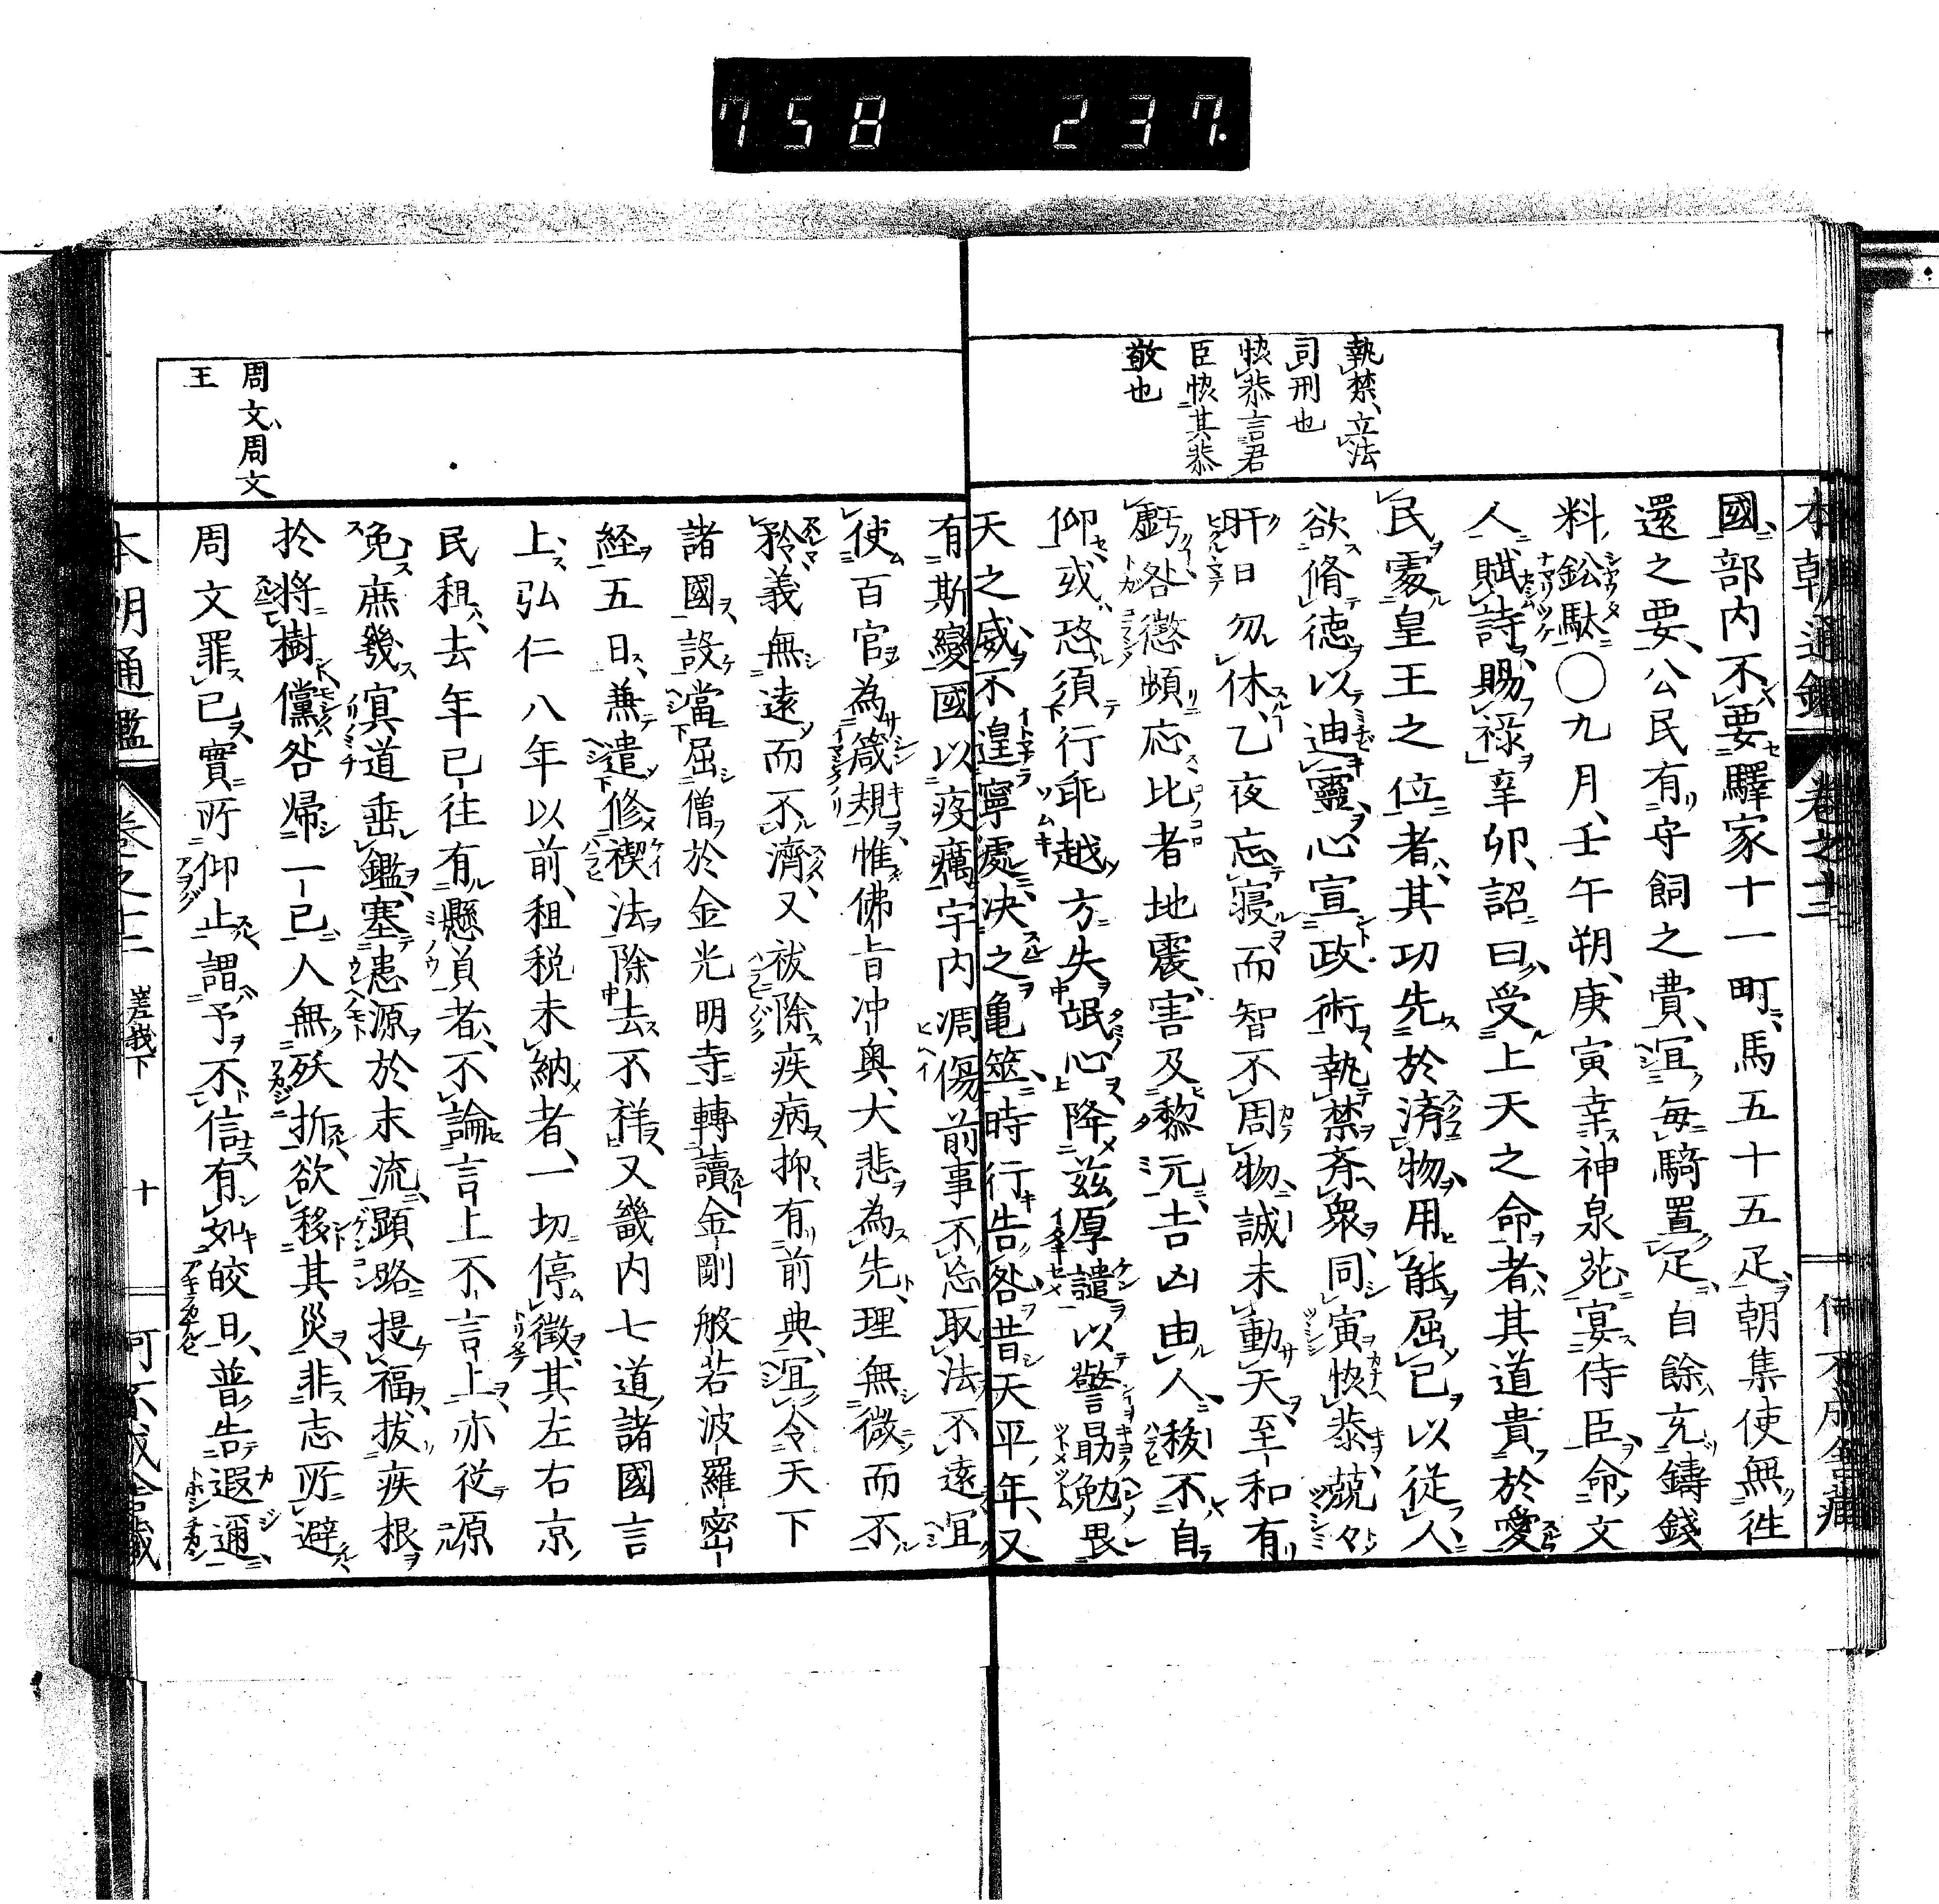 758 237.
執禁、立法
司刑也
恢恭言君
臣恢其恭
敬也
本朝通鑑 卷之十二
國部内不要驛家十一町、馬五十五疋、朝集使無徃
還之要、公民有守飼之費、冝毎騎置疋、自餘充鑄錢
料鈆駄〇九月、壬午朔、庚寅幸神泉苑宴侍臣命文
人賦詩、賜祿、辛卯、詔曰、受上天之命者、其道貴於愛
民、䖏皇王之位者、其功先於済物、用能屈已以從人、
欲脩徳以迪靈心、宣政術、執禁斉衆、同寅恢恭、兢々
肝日勿休、乙夜忘寝而智不周物、誠未動天、至和有
虧咎懲頻応比者地震、害及黎元、吉凶由人、祲不自
仰或恐須行乖越方失、氓心降茲厚譴以警勗勉畏
天之威、不遑寧處、決之亀筮、時行告咎昔天平年、又
有斯變國以疫癘宇内凋傷前事不忘取法不遠冝
使百官為箴規惟佛旨冲奥、大悲為先理無微而不
矜、義無遠而不濟、又祓除疾病、抑有前典、冝令天下
諸國設當屈僧於金光明寺轉讀金剛般若波羅密
経五日、兼遣修禊法除去不祥、又畿内七道諸國言
上、弘仁八年以前、租税未納者、一切停徵、其左右京
民租、去年已往有懸負者、不論言上不言上、亦從源
免、庶幾冥道垂鑑、塞恚源於末流、顕略提福、拔疾根
於將樹儻咎帰一已、人無殀折、欲移其災非志所避
周文罪已實所仰止謂予不信有如皎日、普告遐邇
周文、周文
王
本朝通鑑 卷之十二 嵯峨下 十